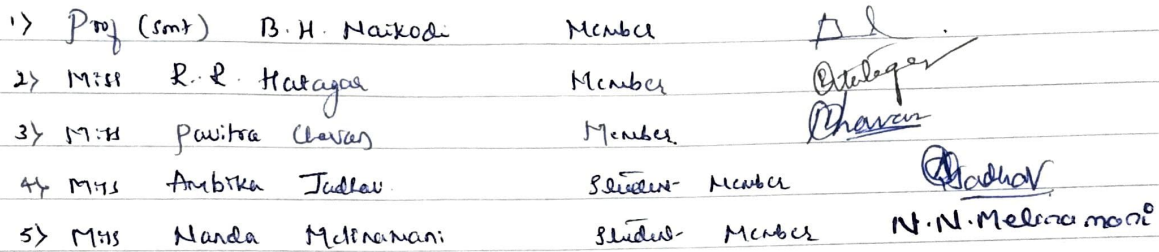 1) Prof (Smt) B. H. Naikodi Member
2) Miss R. R. Hatagar Member
3) Miss Pavitra Chavan Member Chavan
4) Miss Ambika Jadhav Student Member Jadhav
5) Miss Nanda Melinamani Student Member N.N.Melinamani